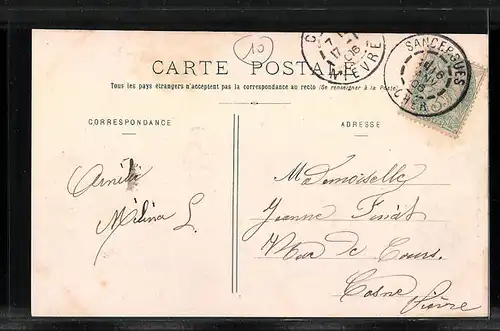 10
CARTE POSTALE
Tous les pays étrangers n'acceptent pas la correspondance au recto (Se renseigner à la Poste)
SANCERGUES
CHER
NIÈVRE
CORRESPONDANCE
ADRESSE
Amitié
Mélina L.
Mademoiselle
Jeanne
Rue de Cours
Cosne
Nièvre